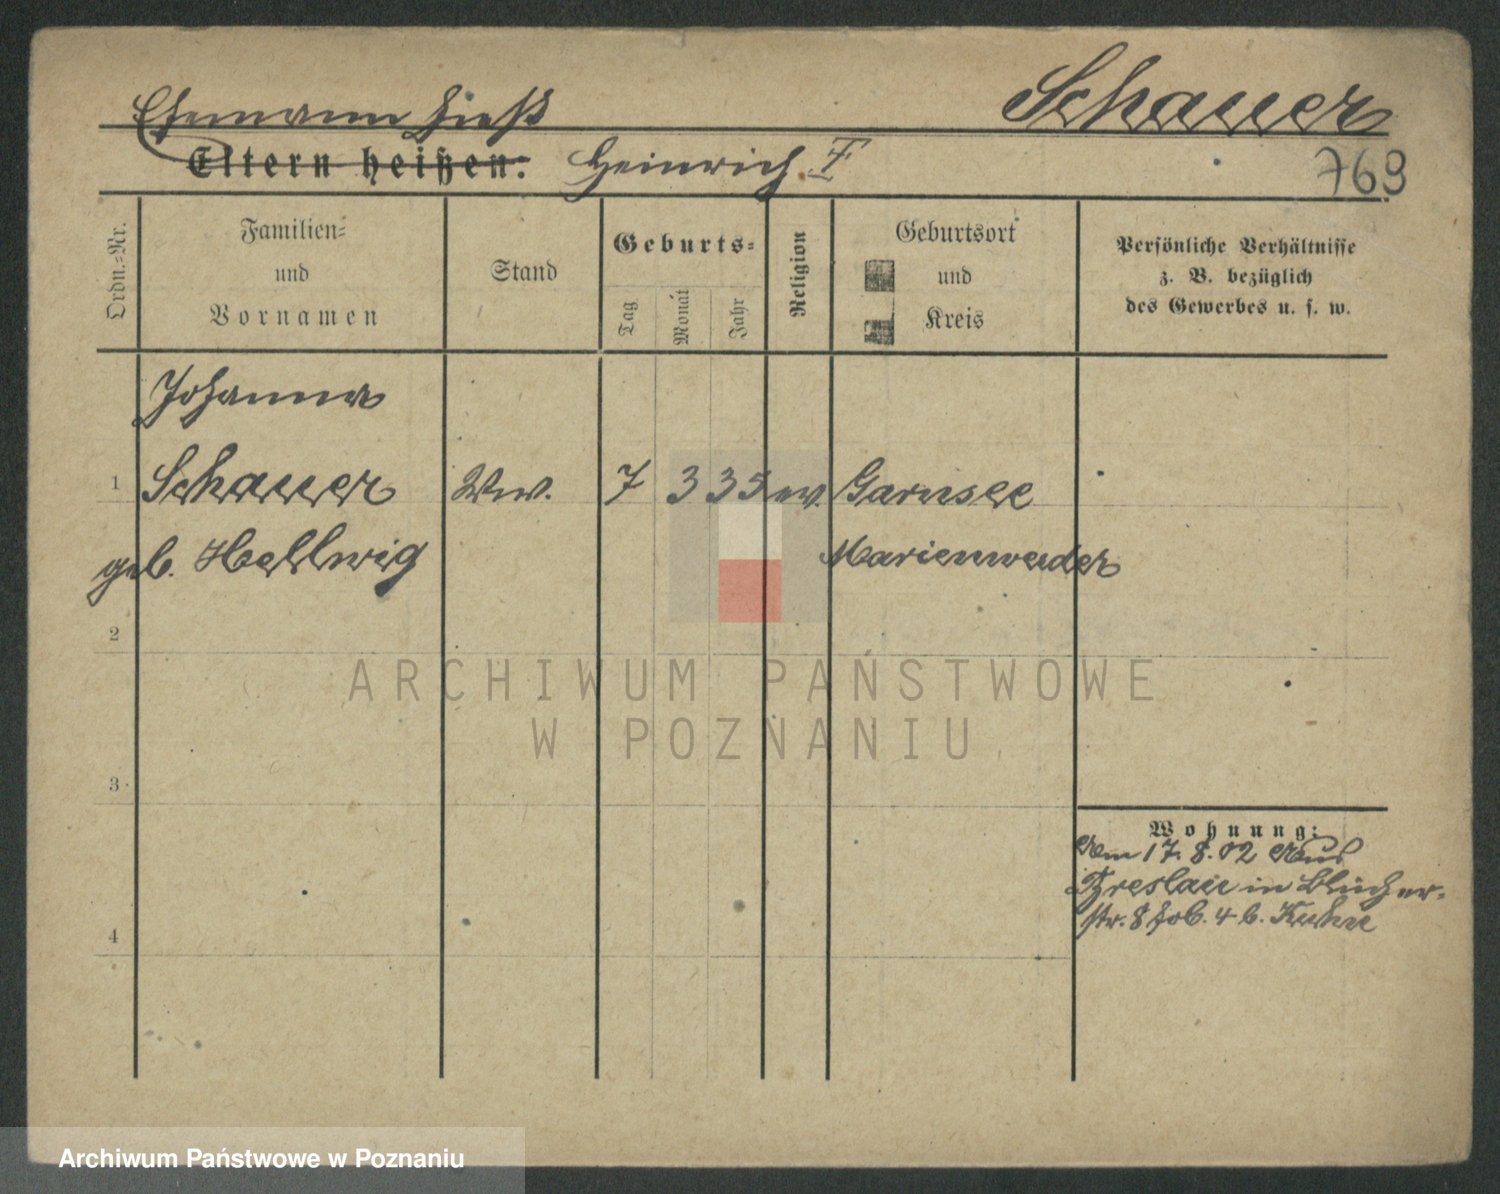 Schauer
Ehemann hieß
Eltern heißen: Heinrich. F
769
Ordn.=Nr.
Familien=
und
Vornamen
Stand
Geburts=
Tag
Monat
Jahr
Religion
Geburtsort
und
Kreis
Persönliche Verhältnisse
z. B. bezüglich
des Gewerbes u. s. w.
Johanna
1 Schauer Ww. 7 3 35 ev. Garnsee
geb. Hellwig Marienwerder
2
ARCHIWUM PAŃSTWOWE
W POZNANIU
3
Wohnung:
Am 17. 8. 02 aus
Breslau in Blücher-
str. 8 b. Kuhn
4
Archiwum Państwowe w Poznaniu